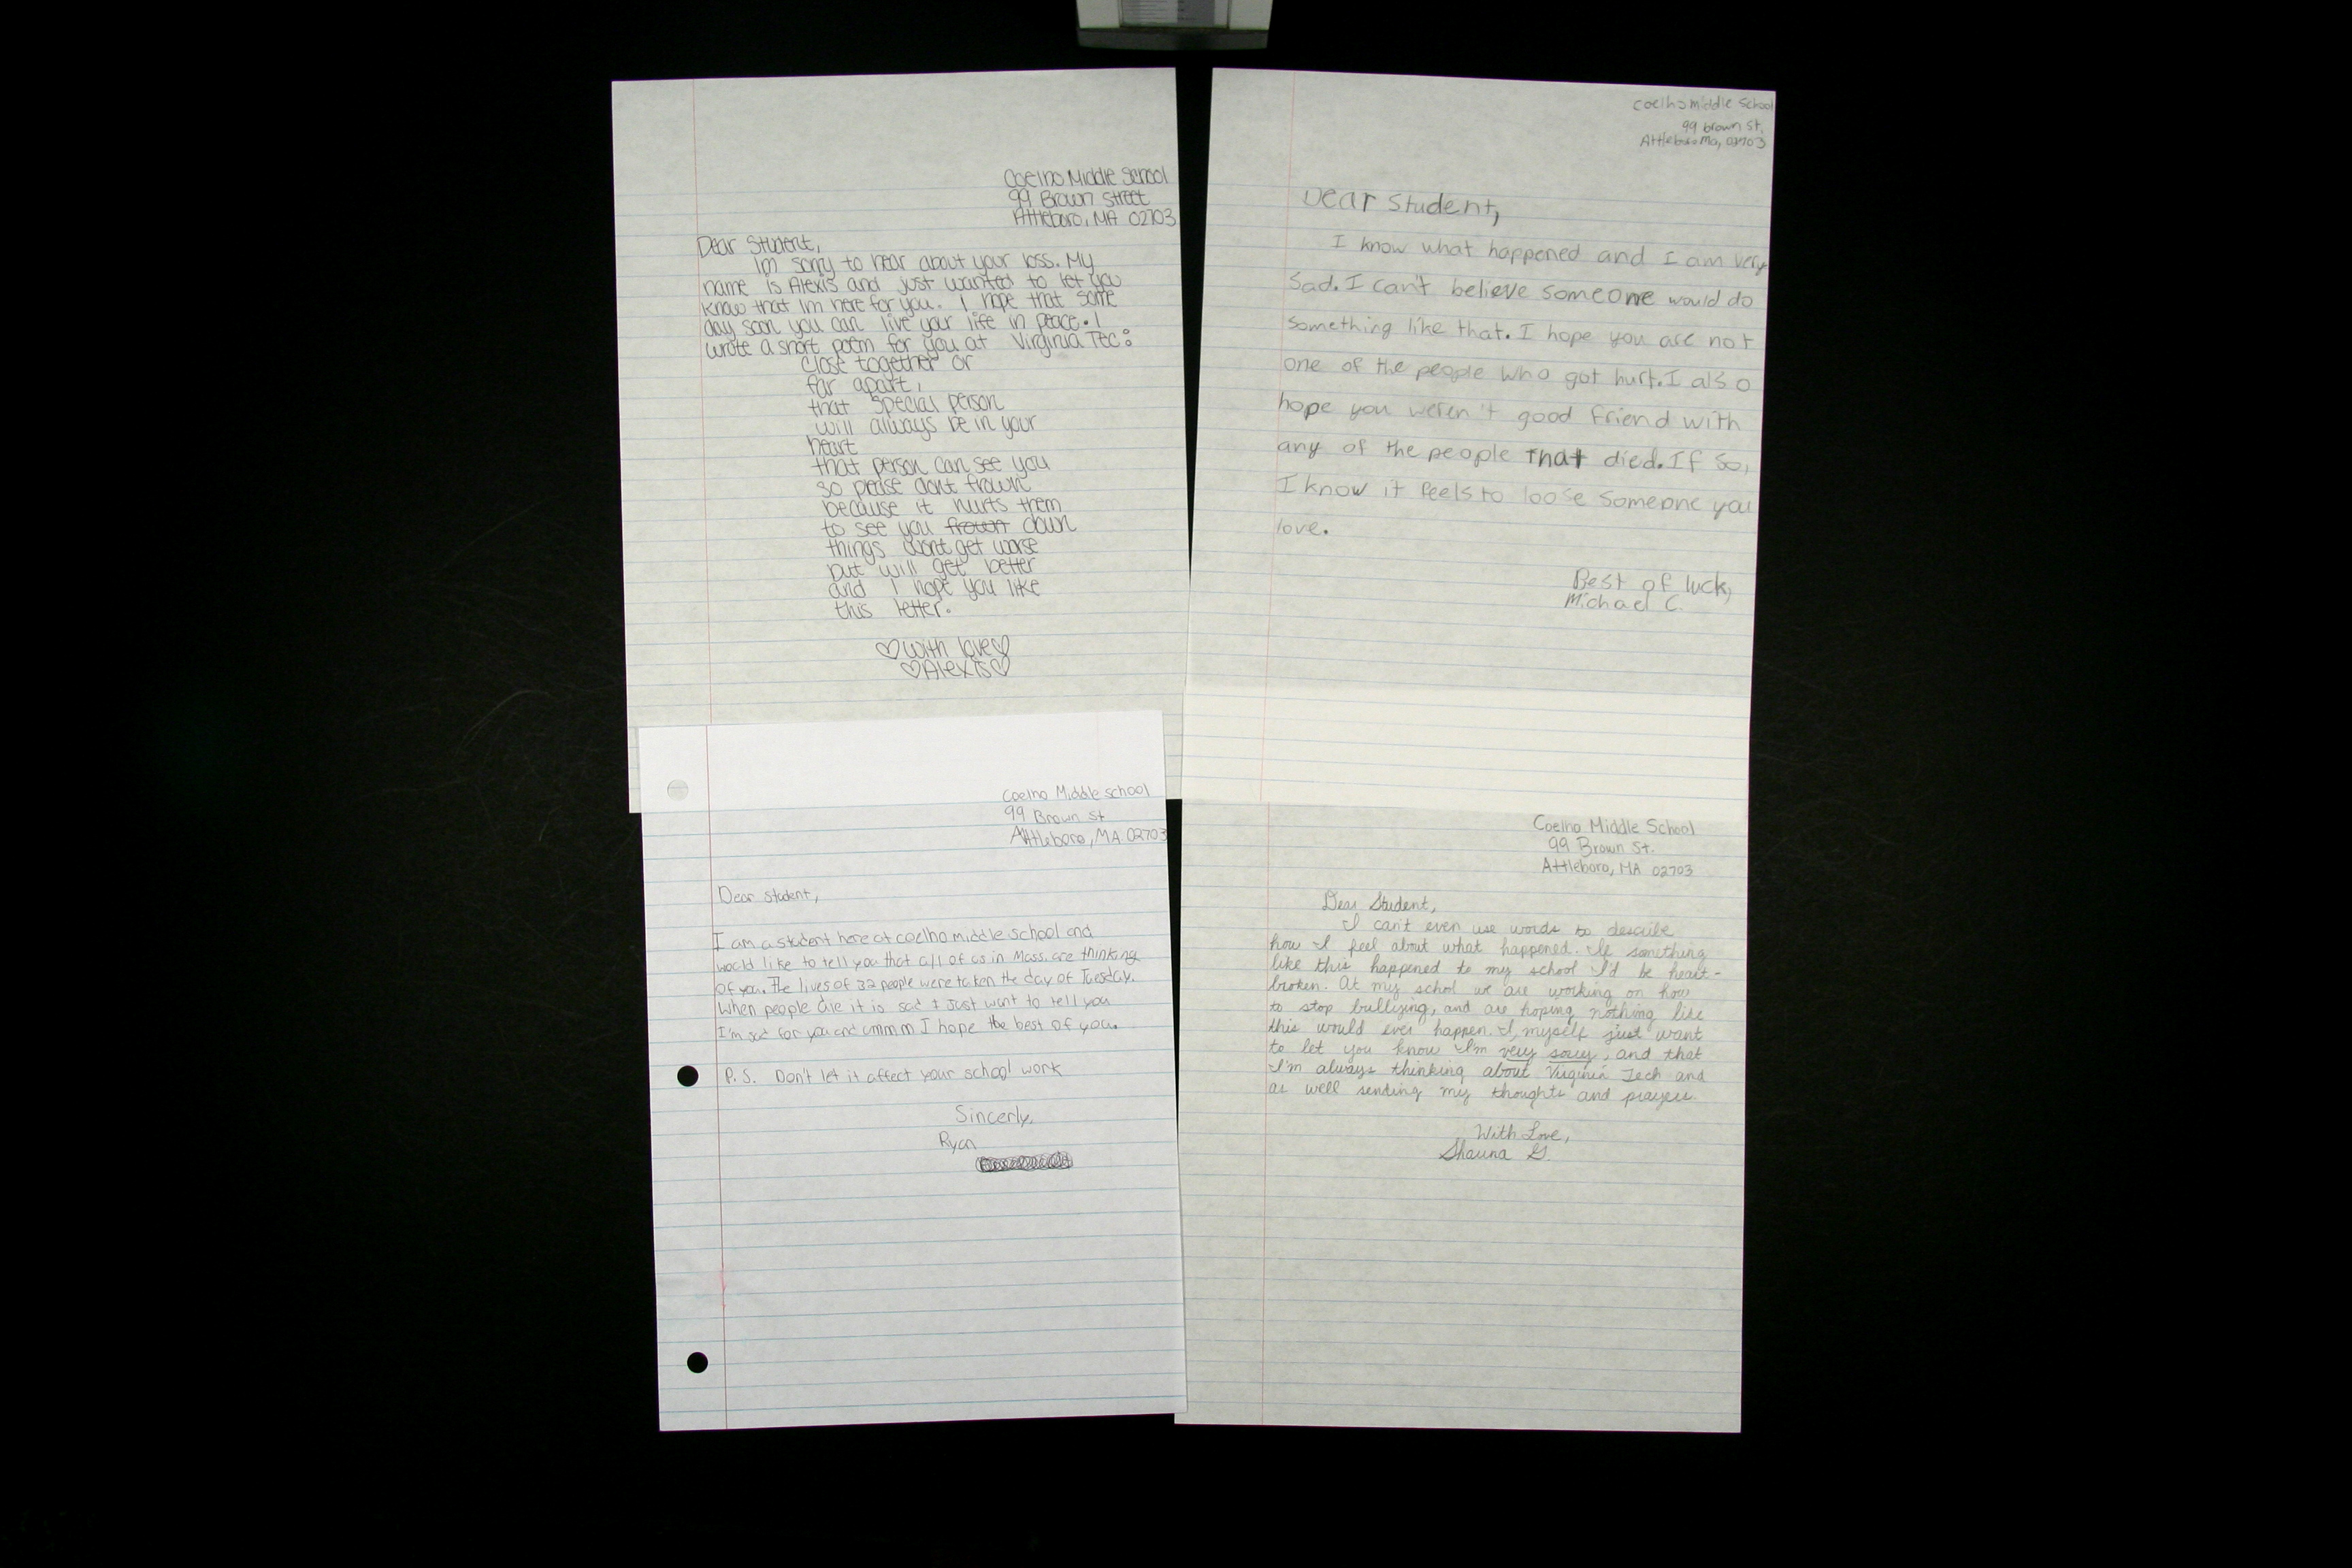 Coelho Middle School
99 Brown Street
Attleboro, MA 02703
Dear Student,
Im sorry to hear about your loss. My
name is Alexis and just wanted to let you
know that Im here for you. I hope that some
day soon you can live your life in peace. I
wrote a short poem for you at Virginia Tec:
close together or
far apart,
that special person
will always be in your
heart
that person can see you
so please dont frown
because it hurts them
to see you frown down
things dont get worse
but will get better
and I hope you like
this letter.
♡with love♡
♡Alexis♡
Coelho middle School
99 brown St,
Attleboro Ma, 02703
Dear Student,
I know what happened and I am very
sad. I can't believe someone would do
something like that. I hope you are not
one of the people who got hurt. I also
hope you weren't good friend with
any of the people that died. If so,
I know it feels to loose someone you
love.
Best of luck,
Michael C.
Coelho Middle school
99 Brown St
Attleboro, MA 02703
Dear student,
I am a student here at coelho middle school and
would like to tell you that all of us in Mass. are thinking
of you. The lives of 32 people were taken the day of Tuesday.
When people die it is sad I just want to tell you
I'm sad for you and ummm I hope the best of you.
P.S. Don't let it affect your school work
Sincerly,
Ryan
Coelho Middle School
99 Brown St.
Attleboro, MA 02703
Dear Student,
I can't even use words to describe
how I feel about what happened. If something
like this happened to my school I'd be heart-
broken. At my school we are working on how
to stop bullying, and are hoping nothing like
this would ever happen. I, myself just want
to let you know I'm very sorry, and that
I'm always thinking about Virginia Tech and
as well sending my thoughts and prayers.
With Love,
Shauna G.